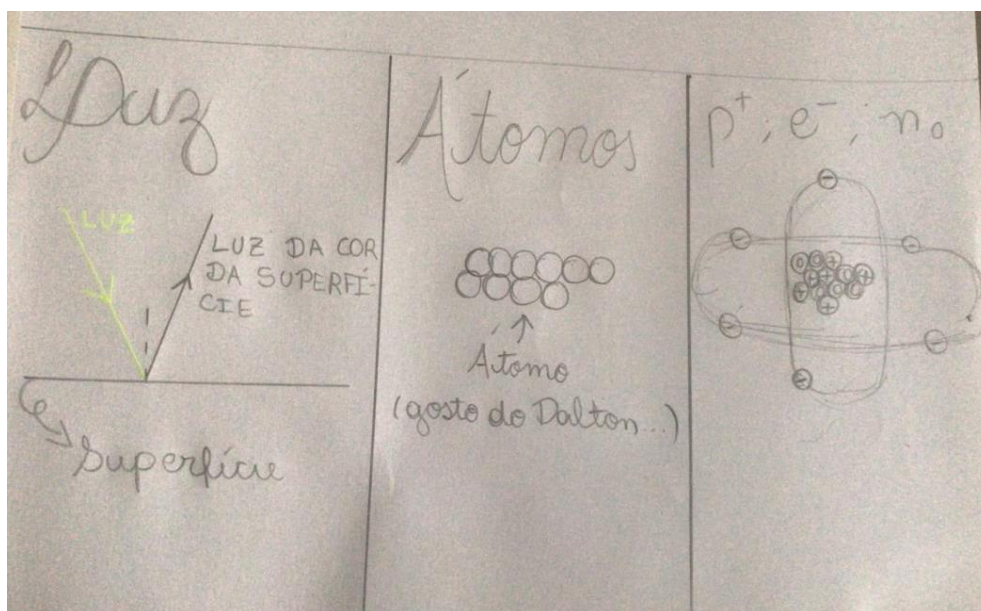 Luz
LUZ
LUZ DA COR
DA SUPERFÍ-
CIE
Superfície
Átomos
Átomo
(gosto do Dalton...)
p⁺; e⁻; n₀